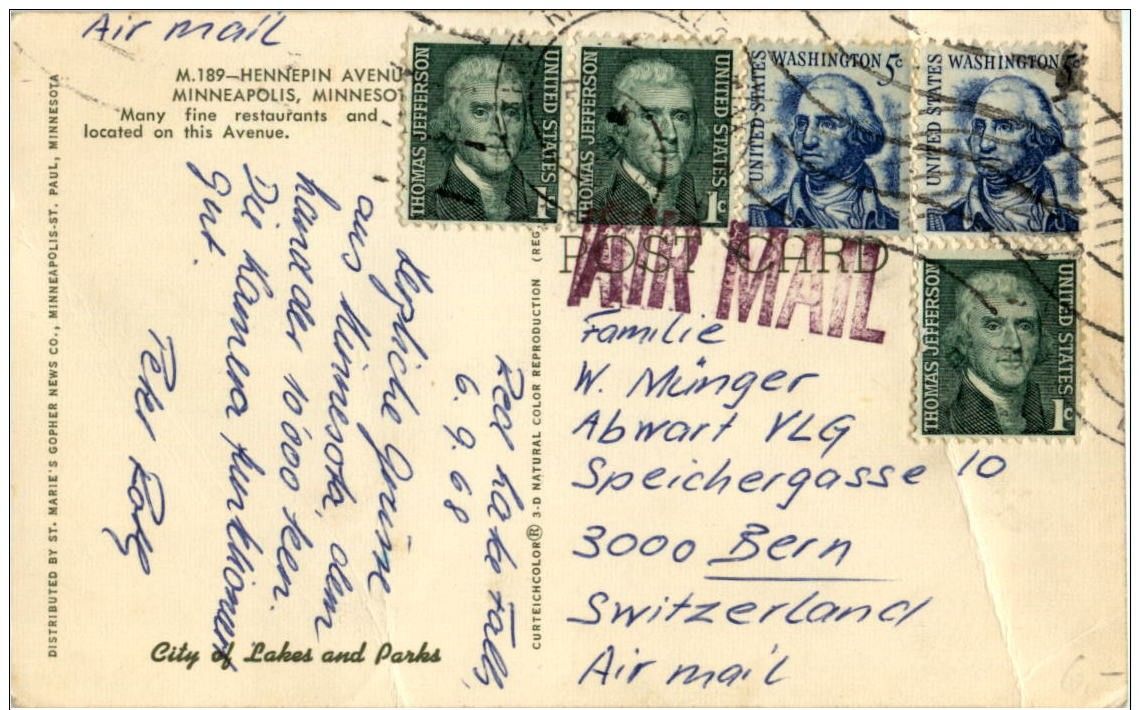 Air mail
M.189—HENNEPIN AVENU
MINNEAPOLIS, MINNESOT
Many fine restaurants and
located on this Avenue.
THOMAS JEFFERSON
UNITED STATES
1c
THOMAS JEFFERSON
UNITED STATES
1c
UNITED STATES
WASHINGTON 5c
UNITED STATES
WASHINGTON 5c
POST CARD
AIR MAIL
THOMAS JEFFERSON
UNITED STATES
1c
DISTRIBUTED BY ST. MARIE'S GOPHER NEWS CO., MINNEAPOLIS-ST. PAUL, MINNESOTA
CURTEICHCOLOR® 3-D NATURAL COLOR REPRODUCTION (REG.
Red Lake Falls,
6.9.68
Herzliche Grüsse
aus Minnesota, dem
Land der 10'000 Seen.
Die Kamera funktioniert
gut.
Peter
Familie
W. Münger
Abwart VLG
Speichergasse 10
3000 Bern
Switzerland
Air mail
City of Lakes and Parks